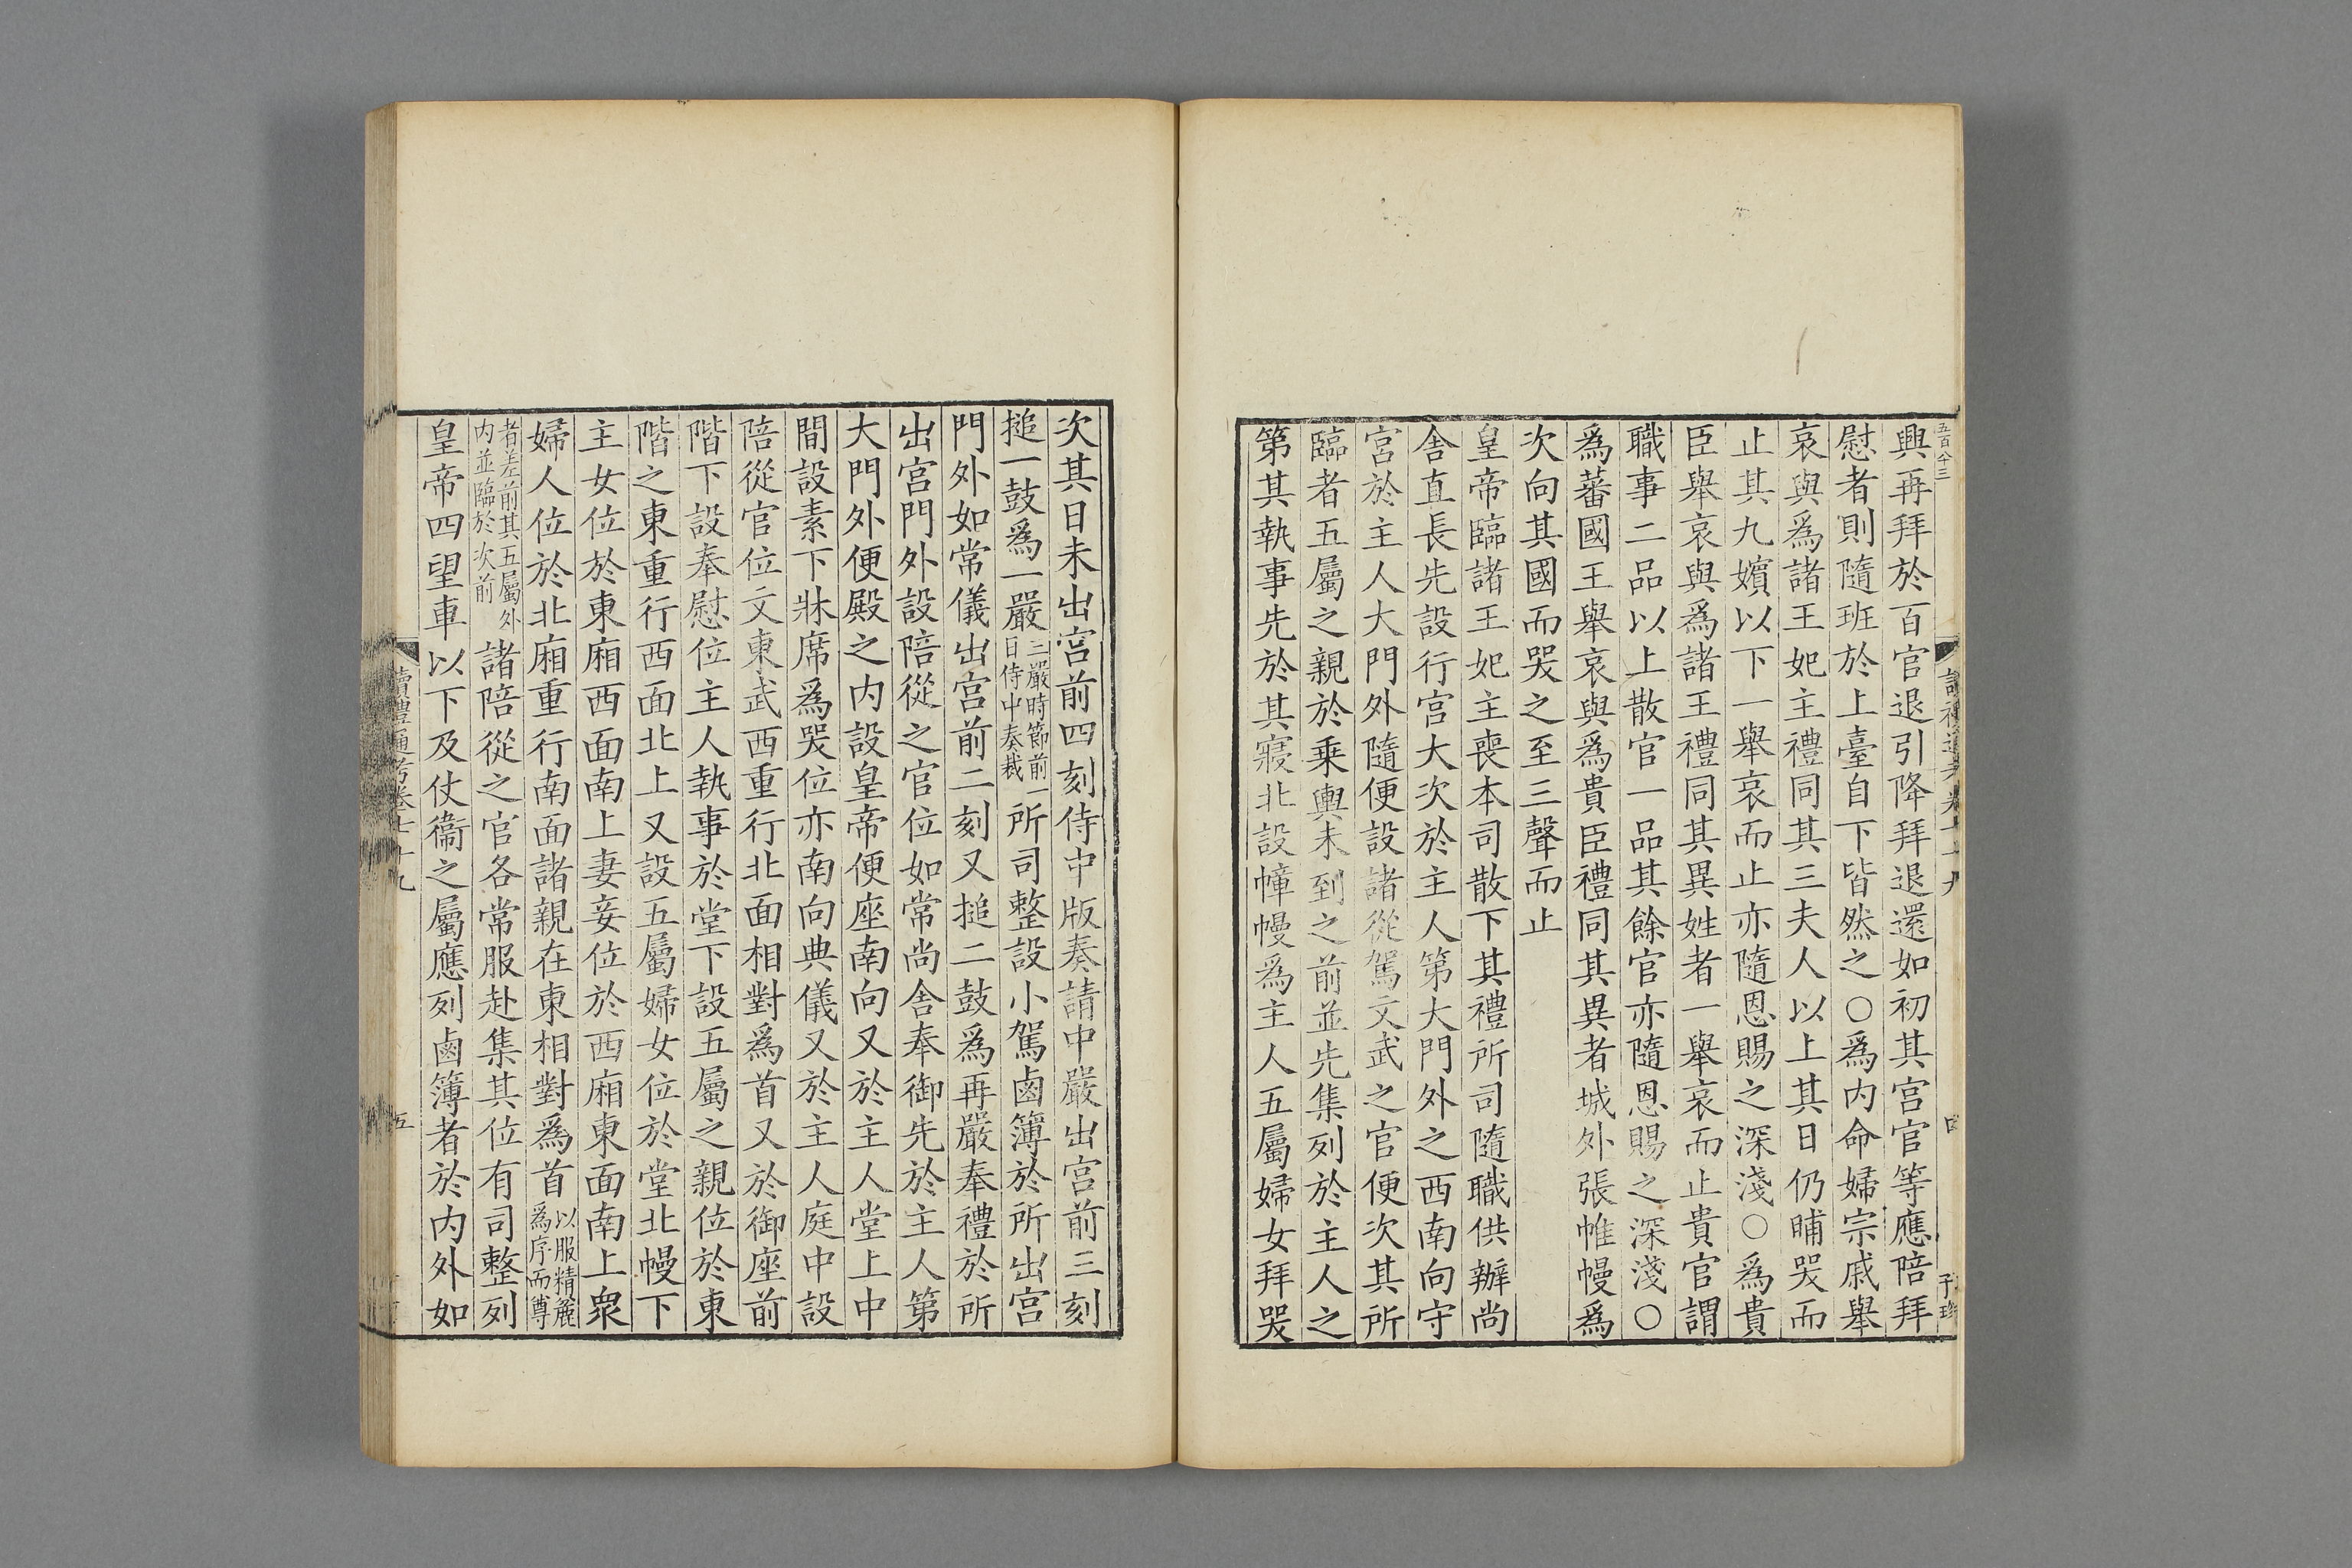 五百八十三
興再拜於百官退引降拜退還如初其宮官等應陪拜
慰者則隨班於上臺自下皆然之○爲内命婦宗戚舉
哀與爲諸王妃主禮同其三夫人以上其日仍晡哭而
止其九嬪以下一舉哀而止亦隨恩賜之深淺○爲貴
臣舉哀與爲諸王禮同其異姓者一舉哀而止貴官謂
職事二品以上散官一品其餘官亦隨恩賜之深淺○
爲蕃國王舉哀與爲貴臣禮同其異者城外張帷幔爲
次向其國而哭之至三聲而止
皇帝臨諸王妃主喪本司散下其禮所司隨職供辦尚
舍直長先設行宮大次於主人第大門外之西南向守
宮於主人大門外隨便設諸從駕文武之官便次其所
臨者五屬之親於乘輿未到之前並先集列於主人之
第其執事先於其寢北設幛幔爲主人五屬婦女拜哭
次其日未出宮前四刻侍中版奏請中嚴出宮前三刻
搥一鼓爲一嚴三嚴時節前一日侍中奏裁所司整設小駕鹵簿於所出宮
門外如常儀出宮前二刻又搥二鼓爲再嚴奉禮於所
出宮門外設陪從之官位如常尚舍奉御先於主人第
大門外便殿之内設皇帝便座南向又於主人堂上中
間設素下牀席爲哭位亦南向典儀又於主人庭中設
陪從官位文東武西重行北面相對爲首又於御座前
階下設奉慰位主人執事於堂下設五屬之親位於東
階之東重行西面北上又設五屬婦女位於堂北幔下
主女位於東廂西面南上妻妾位於西廂東面南上衆
婦人位於北廂重行南面諸親在東相對爲首以服精麤爲序而尊
者差前其五屬外内並臨於次前諸陪從之官各常服赴集其位有司整列
皇帝四望車以下及仗衞之屬應列鹵簿者於内外如
讀禮通考卷七十九
五